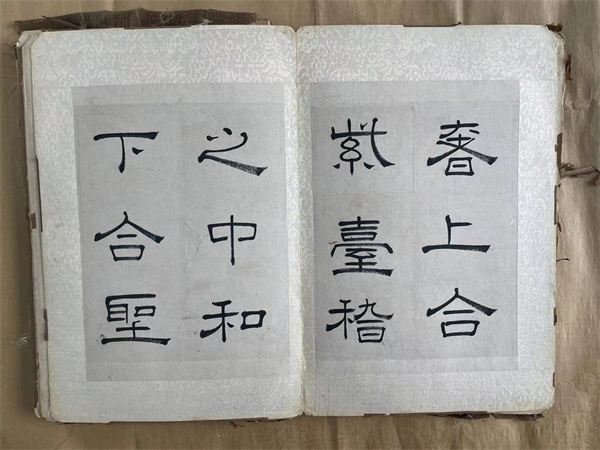 奢上合
紫臺稽
之中和
下合聖